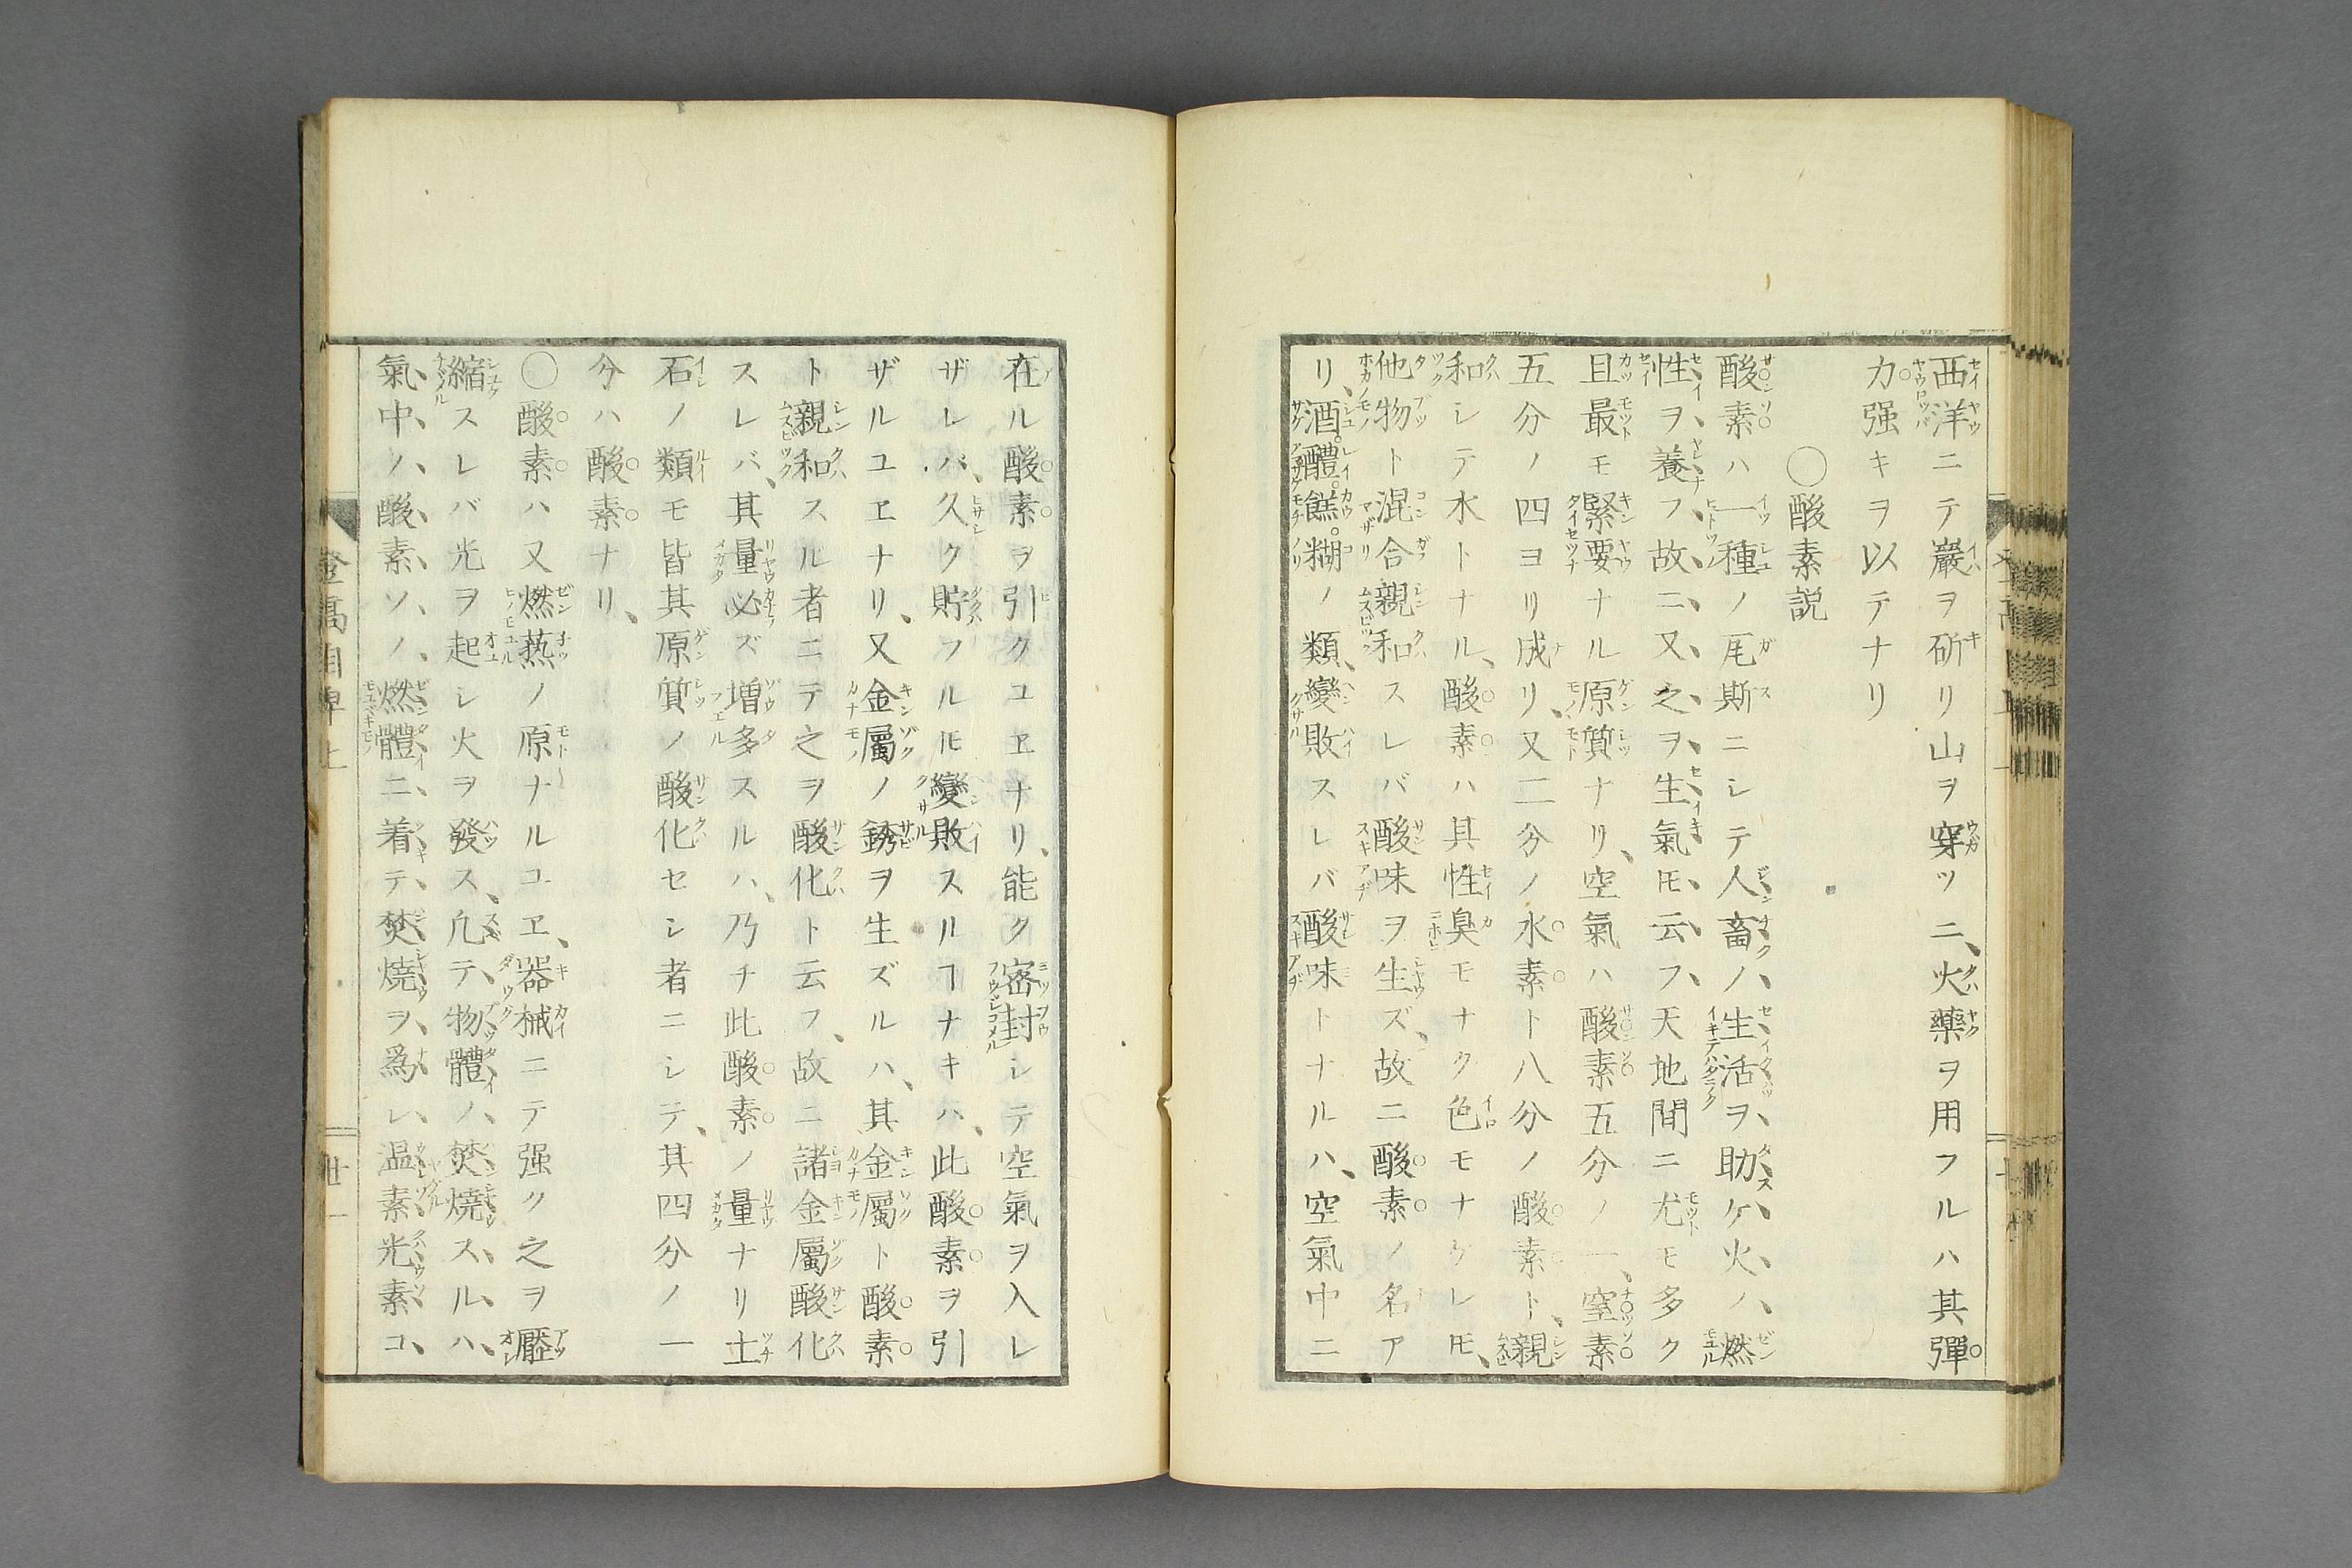 西洋ニテ巖ヲ斫リ山ヲ穿ツニ、火藥ヲ用フルハ其彈
力强キヲ以テナリ
〇酸素説
酸素ハ一種ノ尾斯ニシテ人畜ノ生活ヲ助ケ火ノ燃
性ヲ養フ故ニ又之ヲ生氣𪜈云フ天地間ニ尤モ多ク
且最モ緊要ナル原質ナリ、空氣ハ酸素五分ノ一、窒素
五分ノ四ヨリ成リ、又二分ノ水素ト八分ノ酸素ト、親
和シテ水トナル、酸素ハ其性臭モナク色モナケレ𪜈、
他物ト混合親和スレバ酸味ヲ生ズ、故ニ酸素ノ名ア
リ、酒醴餻糊ノ類、變敗スレバ酸味トナルハ、空氣中ニ
在ル酸素ヲ引クユヱナリ、能ク密封シテ空氣ヲ入レ
ザレバ、久ク貯フル𪜈變敗スルヿナキハ、此酸素ヲ引
ザルユヱナリ、又金屬ノ銹ヲ生ズルハ、其金屬ト酸素
ト親和スル者ニテ之ヲ酸化ト云フ、故ニ諸金屬酸化
スレバ、其量必ズ増多スルハ、乃チ此酸素ノ量ナリ土
石ノ類モ皆其原質ノ酸化セシ者ニシテ、其四分ノ一
分ハ酸素ナリ、
〇酸素ハ又燃𤍠ノ原ナルユヱ、器械ニテ强ク之ヲ壓
縮スレバ光ヲ起シ火ヲ發ス、凢テ物體ノ焚燒スルハ、
氣中ノ酸素ソノ燃體ニ着テ焚燒ヲ爲シ、温素光素コ
上
廿一